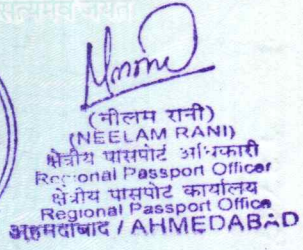 सत्यमेव जयते
(नीलम रानी)
(NEELAM RANI)
क्षेत्रीय पासपोर्ट अधिकारी
Regional Passport Officer
क्षेत्रीय पासपोर्ट कार्यालय
Regional Passport Office
अहमदाबाद / AHMEDABAD